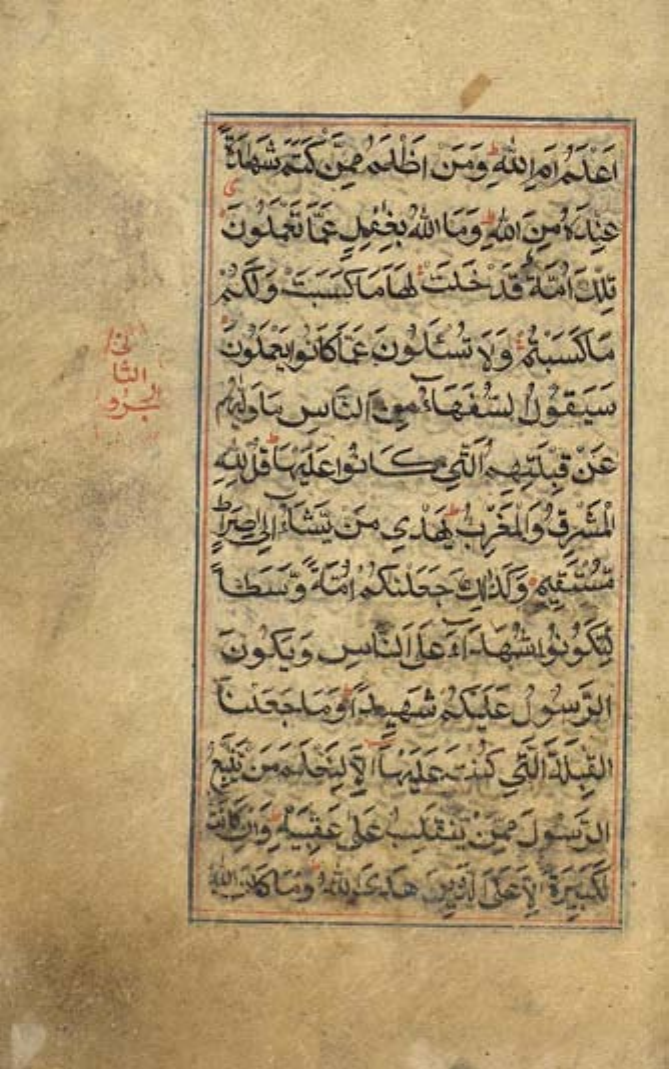 اَعْلَمُ اَمِ اللّٰهُ وَمَنْ اَظْلَمُ مِمَّنْ كَتَمَ شَهٰدَةً
عِنْدَهٗ مِنَ اللّٰهِ وَمَا اللّٰهُ بِغٰفِلٍ عَمَّا تَعْمَلُونَ
تِلْكَ اُمَّةٌ قَدْ خَلَتْ لَهَا مَا كَسَبَتْ وَلَكُمْ
مَا كَسَبْتُمْ وَلَا تُسْئَلُونَ عَمَّا كَانُوا يَعْمَلُونَ
سَيَقُولُ السُّفَهَاءُ مِنَ النَّاسِ مَا وَلّٰىهُمْ
عَنْ قِبْلَتِهِمُ الَّتِي كَانُوا عَلَيْهَا قُلْ لِلّٰهِ
الْمَشْرِقُ وَالْمَغْرِبُ يَهْدِي مَنْ يَّشَاءُ اِلٰى صِرَاطٍ
مُّسْتَقِيمٍ وَكَذٰلِكَ جَعَلْنٰكُمْ اُمَّةً وَّسَطًا
لِّتَكُونُوا شُهَدَاءَ عَلَى النَّاسِ وَيَكُونَ
الرَّسُولُ عَلَيْكُمْ شَهِيدًا وَمَا جَعَلْنَا
الْقِبْلَةَ الَّتِي كُنْتَ عَلَيْهَا اِلَّا لِنَعْلَمَ مَنْ يَّتَّبِعُ
الرَّسُولَ مِمَّنْ يَّنْقَلِبُ عَلٰى عَقِبَيْهِ وَاِنْ كَانَتْ
لَكَبِيرَةً اِلَّا عَلَى الَّذِينَ هَدَى اللّٰهُ وَمَا كَانَ اللّٰهُ
الثاني